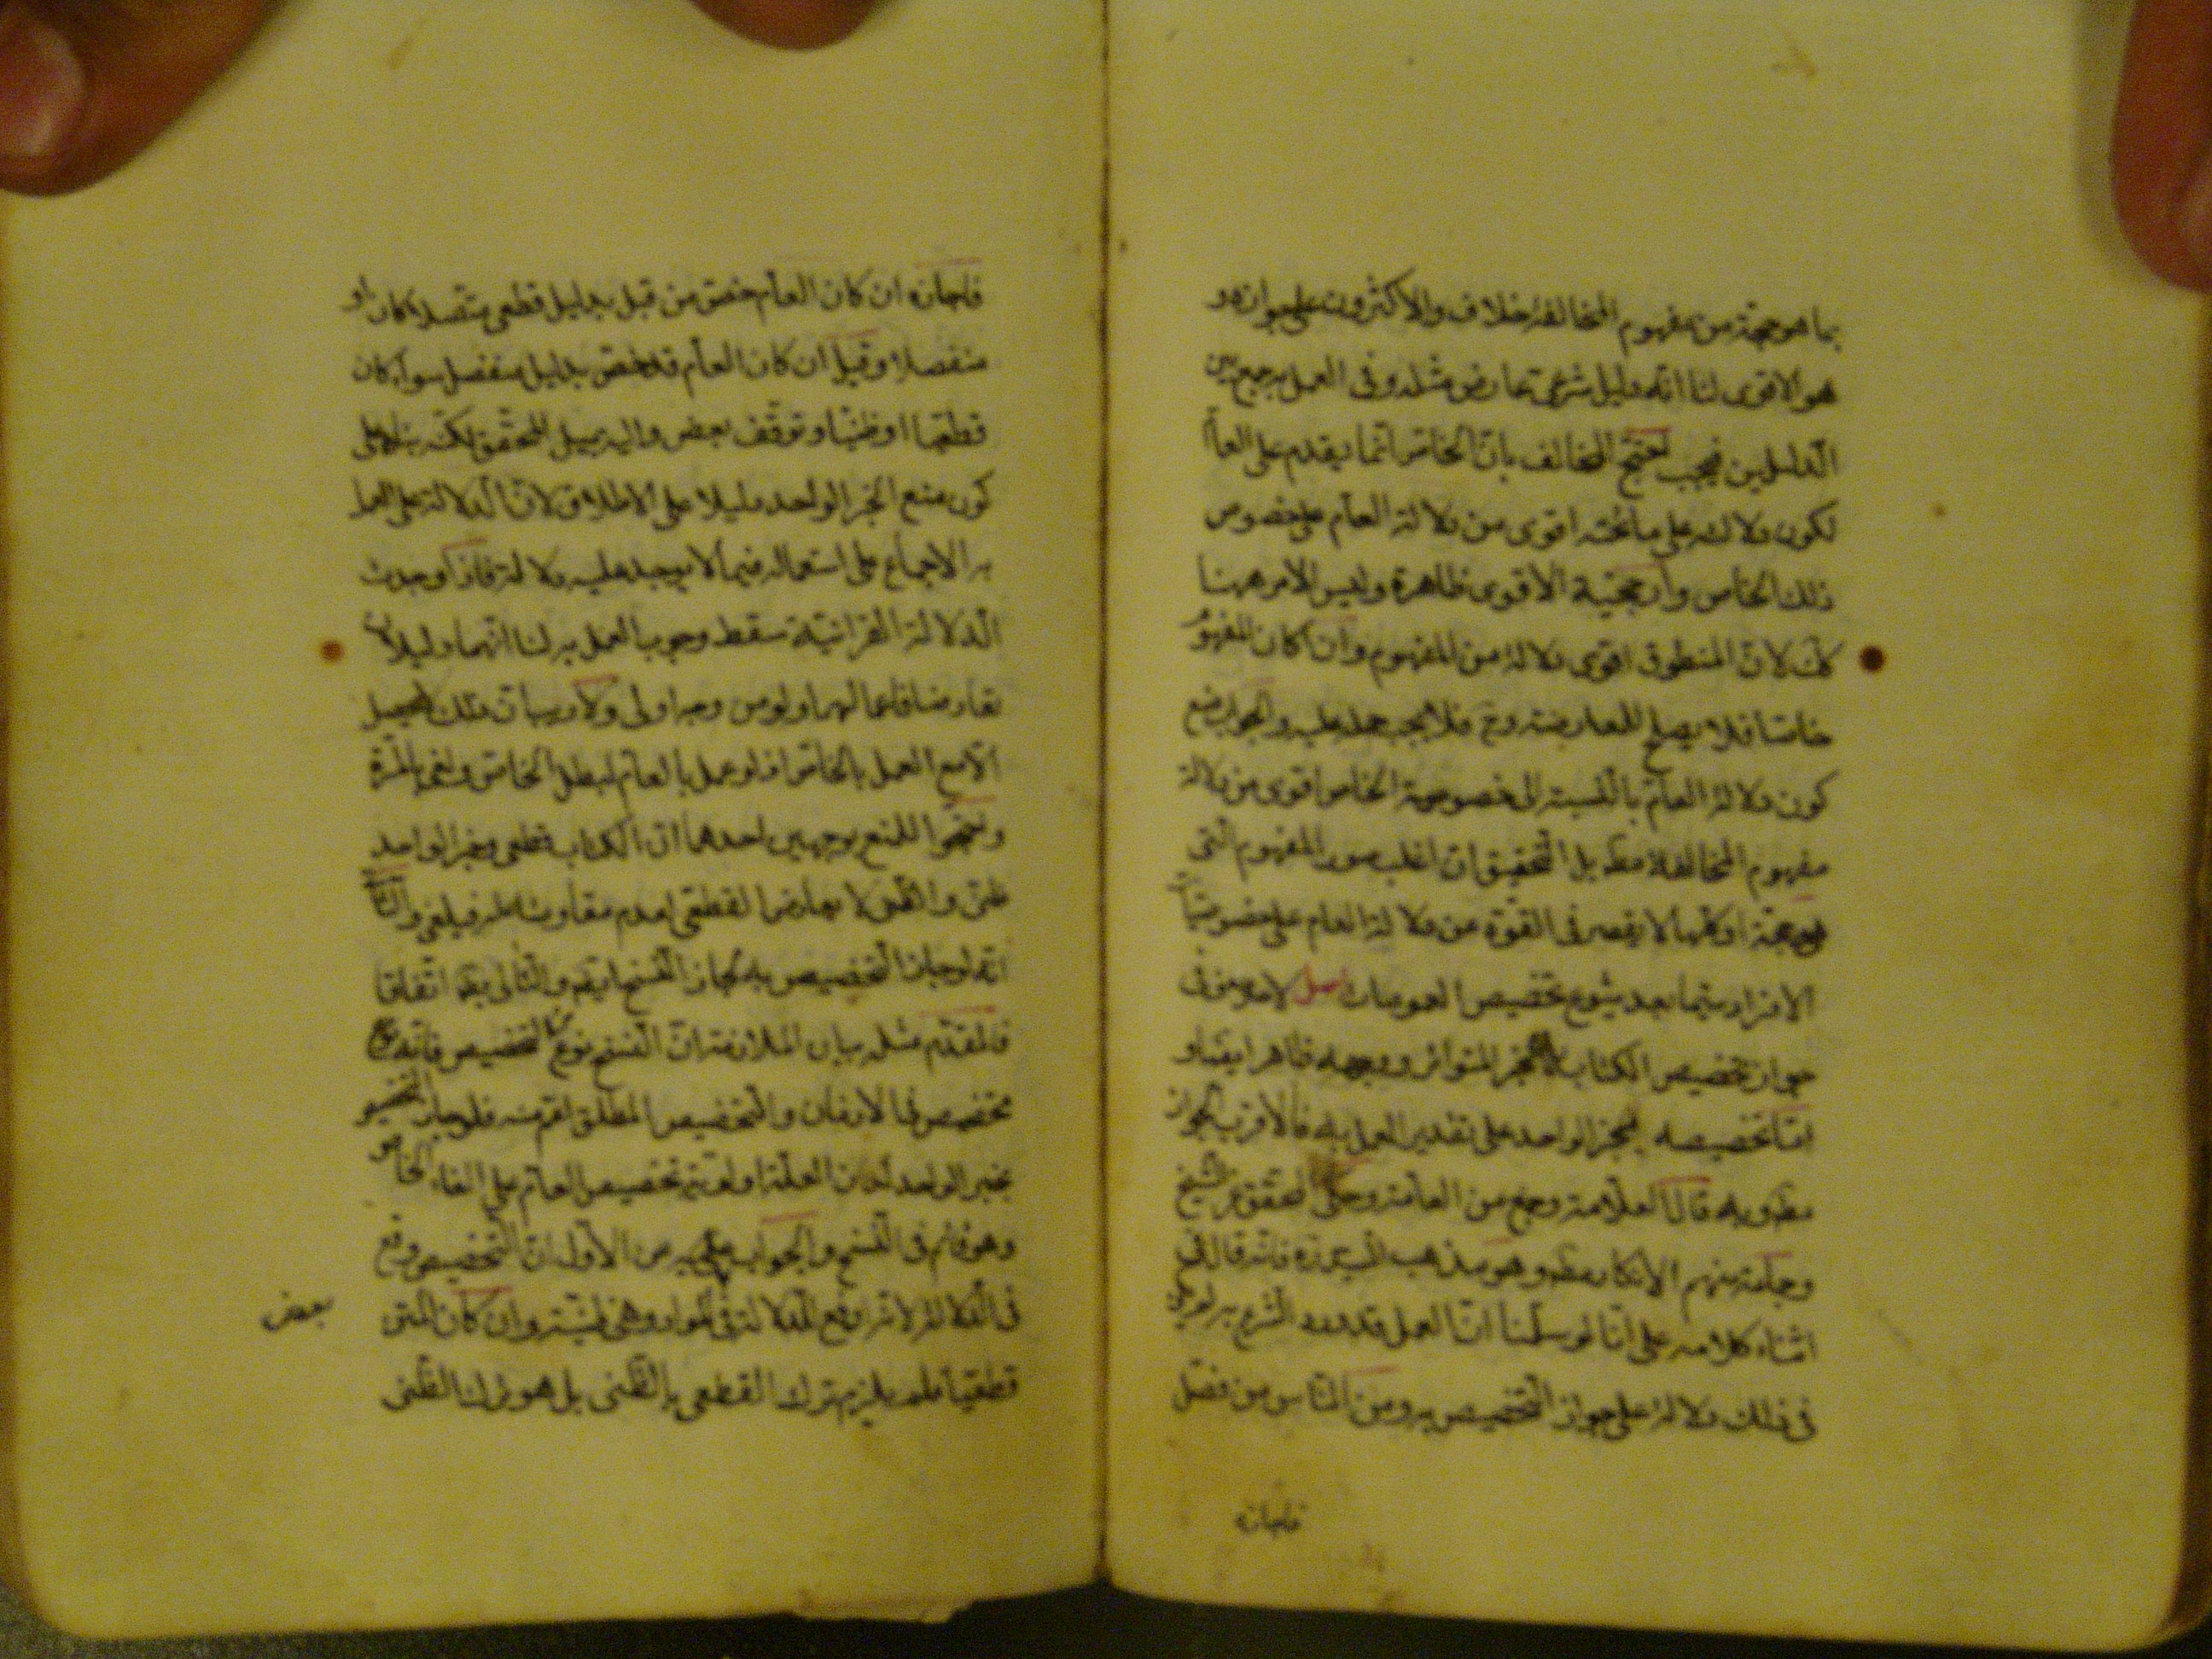 بما هو حجة من مفهوم المخالفة خلاف والاكثرون على جوازه و
هو الاقوى لنا انه دليل شرعى عارض مثله وفى العمل به جمع بين
الدليلين فيجب احتج المخالف بان الخاص انما يقدم على العا
لكون دلالته على ما تحته اقوى من دلالة العام على خصوص
ذلك الخاص وارجحية الاقوى ظاهرة وليس الامر ههنا
كك لان المنطوق اقوى دلالة من المفهوم وان كان المفهوم
خاصا فلا يصلح لمعارضته وح فلا يجب حمله عليه والجواب منع
كون دلالة العام بالنسبة الى خصوصية الخاص اقوى من دلالة
مفهوم المخالفة مط بل التحقيق ان اغلب صور المفهوم التى
هى حجة او كلها لا يقصر فى القوة عن دلالة العام على خصوصيات
الافراد سيما بعد شيوع تخصيص العمومات اصل لا خلاف فى
جواز تخصيص الكتاب بالخبر المتواتر ووجهه ظاهر ايضا و
اما تخصيصه بخبر الواحد على تقدير العمل به فالاقرب جوازه
مط وبه قال العلامة وجمع من العامة وحكى المحقق عن الشيخ
وجماعة منهم الانكار مط وهو مذهب السيد ره فانه قال فى
اثناء كلامه على انا لو سلمنا ان العمل قد ورد الشرع به لم يكن
فى ذلك دلالة على جواز التخصيص به ومن الناس من فصل
فاجازه
فاجازه ان كان العام خص من قبل بدليل قطعى متصلا كان او
منفصلا وقيل ان كان العام قد خص بدليل منفصل سواء كان
قطعيا او ظنيا وتوقف بعض واليه يميل المحقق لكنه بناه على
كون منع الخبر الواحد دليلا على الاطلاق لان الدلالة على العمل
به الاجماع على استعماله فيما لا يوجد عليه دلالة فاذا وجدت
الدلالة القرانية سقط وجوب العمل به لنا انهما دليلان
تعارضا فاعمالهما ولو من وجه اولى ولا ريب ان ذلك لا يحصل
الا مع العمل بالخاص اذ لو عمل بالعام لبطل الخاص ولغى بالمرة
واحتجوا للمنع بوجهين احدهما ان الكتاب قطعى وخبر الواحد
ظنى والظنى لا يعارض القطعى لعدم مقاومته له فيلغى والثا
انه لو جاز التخصيص به لجاز النسخ ايضا والتالى بط اتفاقا
فالمقدم مثله بيان الملازمة ان النسخ نوع من التخصيص فانه
تخصيص فى الازمان والتخصيص المطلق اعم منه فلو جاز التخصيص
بخبر الواحد لكانت العلة اولوية تخصيص العام على الغاء الخاص
وهو قائم فى النسخ والجواب عن الاول ان التخصيص وقع
فى الدلالة لانه رفع للدلالة فى الموارد وهى ظنية وان كان المتن
بعض
قطعيا فلم يلزم ترك القطعى بالظنى بل هو ترك الظنى